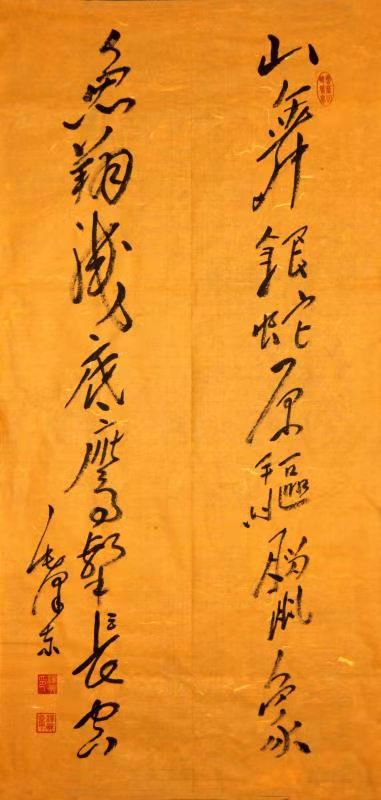 山舞銀蛇原驅臘象
魚翔淺底鷹擊長空
毛澤東